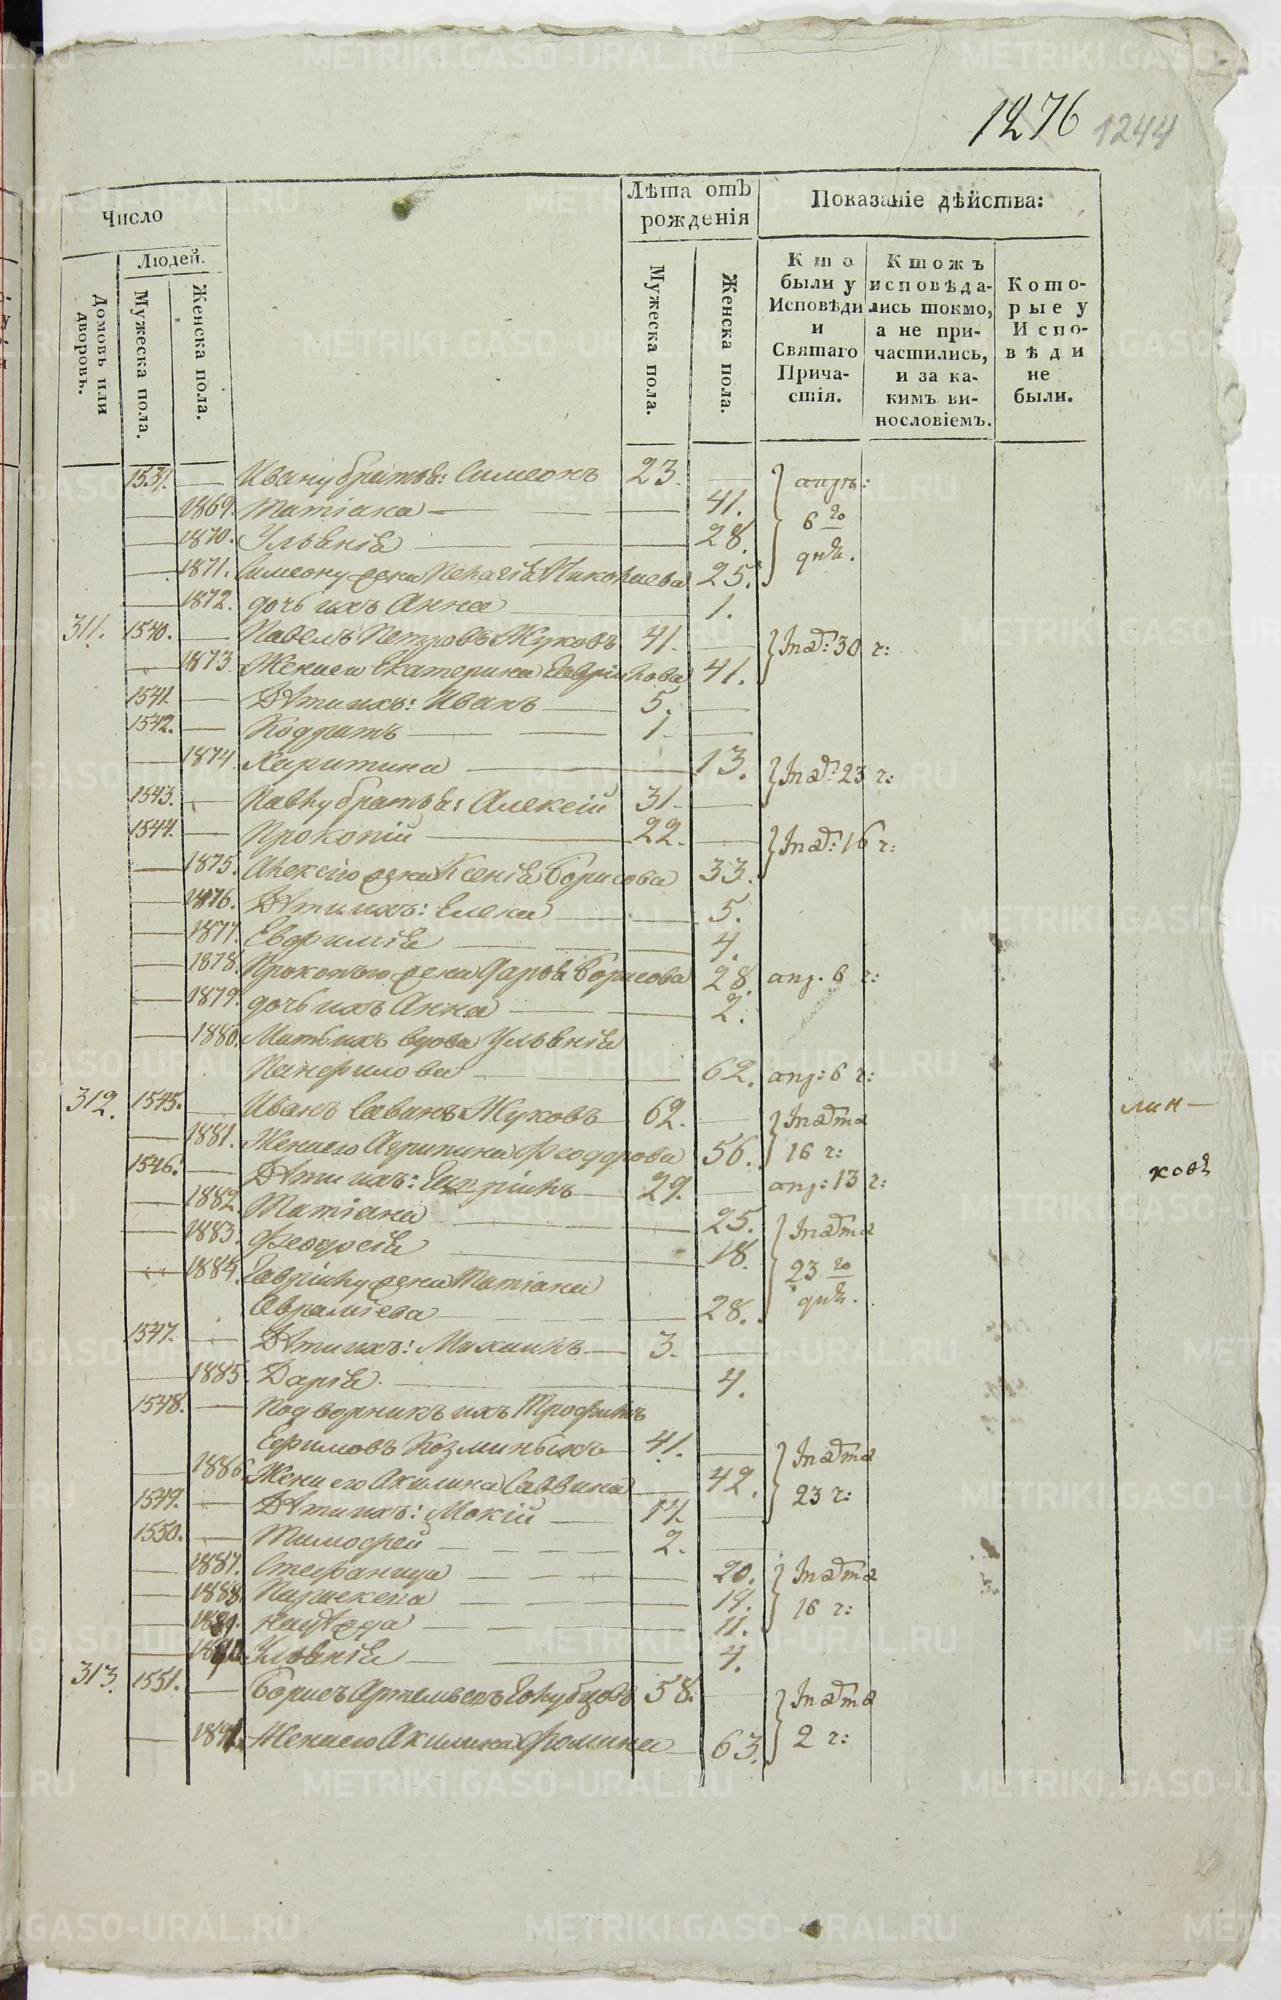 1276 1244
Число
Людей.
Домовъ или дворовъ.
Мужеска пола.
Женска пола.
Лѣта отъ рожденія
Мужеска пола.
Женска пола.
Показаніе дѣйства:
Кто были у Исповѣди и Святаго Причастія.
Ктожъ исповѣдались токмо, а не причастились, и за какимъ винословіемъ.
Которые у Исповѣди не были.
1539. Ивану братья: Симеонъ 23.
1869. Татіана 41.
1870. Ульянія 28.
1871. Симеону жена Пелагія Николаева 25.
1872. дочь ихъ Анна 1.
апрѣ: 6 го дня.
311. 1540. Павелъ Петровъ Жуковъ 41.
1873. Жена его Екатерина Гаврилова 41.
март: 30 ч:
1541. Дѣти ихъ: Иванъ 5.
1542. Кодратъ 1.
1874. Харитина 13. март: 23 ч:
1543. Павлу братья: Алексій 31.
1544. Прокопій 22.
1875. Алексію жена Ксенія Борисова 33.
март: 16 ч:
1876. Дѣти ихъ: Елена 5.
1877. Евфимія 4.
1878. Прокопью жена Дарья Борисова 28. апр. 6 ч:
1879. дочь ихъ Анна 2.
1880. Мать ихъ вдова Ульянія
Панфилова 62. апр: 6 ч:
312. 1545. Иванъ Савинъ Жуковъ 62.
1881. Жена его Агрипина Феодорова 56.
марта 16 ч:
1546. Дѣти ихъ: Гаврiилъ 29. апр: 13 ч:
1882. Татіана 25.
1883. Феодосія 18.
1884. Гаврiилу жена Татіана
Авраміева 28.
марта 23 го дня.
1547. Дѣти ихъ: Михаилъ 3.
1885. Дарія 4.
1548. Подворникъ ихъ Трофимъ
Ефимовъ Козминыхъ 41.
1886. Жена его Акилина Саввина 42.
марта 23 ч:
1549. Дѣти ихъ: Мокій 14.
1550. Тимофей 2.
1887. Стефанида 20.
1888. Параскева 19.
1889. Надѣжда 11.
марта 16 ч:
1890. Ульянія 4.
313. 1551. Борисъ Артемьевъ Голубцовъ 58.
1891. Жена его Акилина Фомина 63.
марта 2 ч:
METRIKI.GASO-URAL.RU